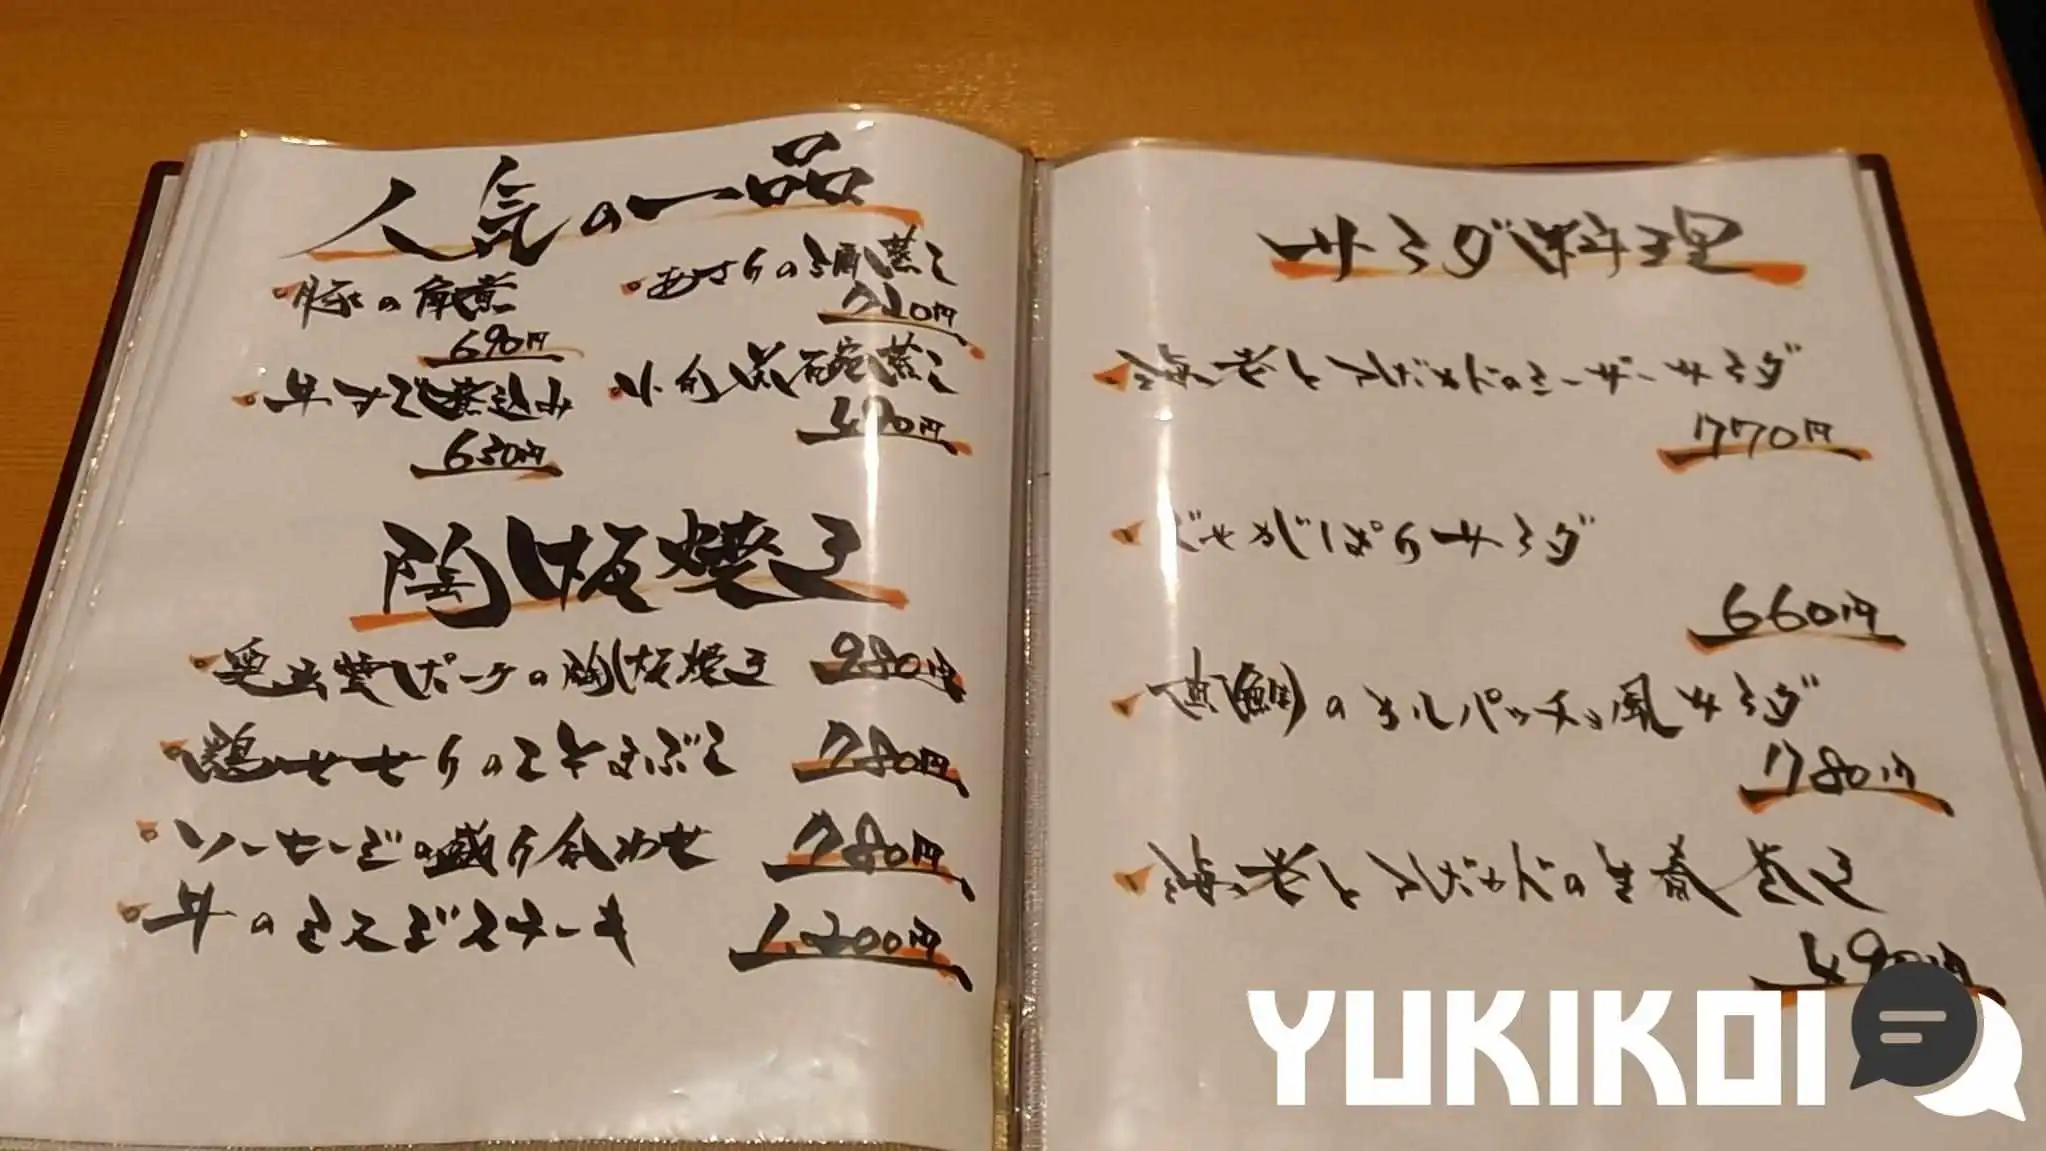 人気の一品
豚の角煮
690円
牛すじ煮込み
650円
あさりの酒蒸し
710円
小町茶碗蒸し
490円
陶板焼き
ポークの陶板焼き 980円
鶏せせりのユキまぶし 780円
ソーセージの盛り合わせ 780円
牛のサステーキ 1,200円
サラダ料理
海老とアボカドのシーザーサラダ
770円
じゃがぱりサラダ
660円
真鯛のカルパッチョ風サラダ
780円
海老とアボカドの生春巻き
490円
YUKIKOI